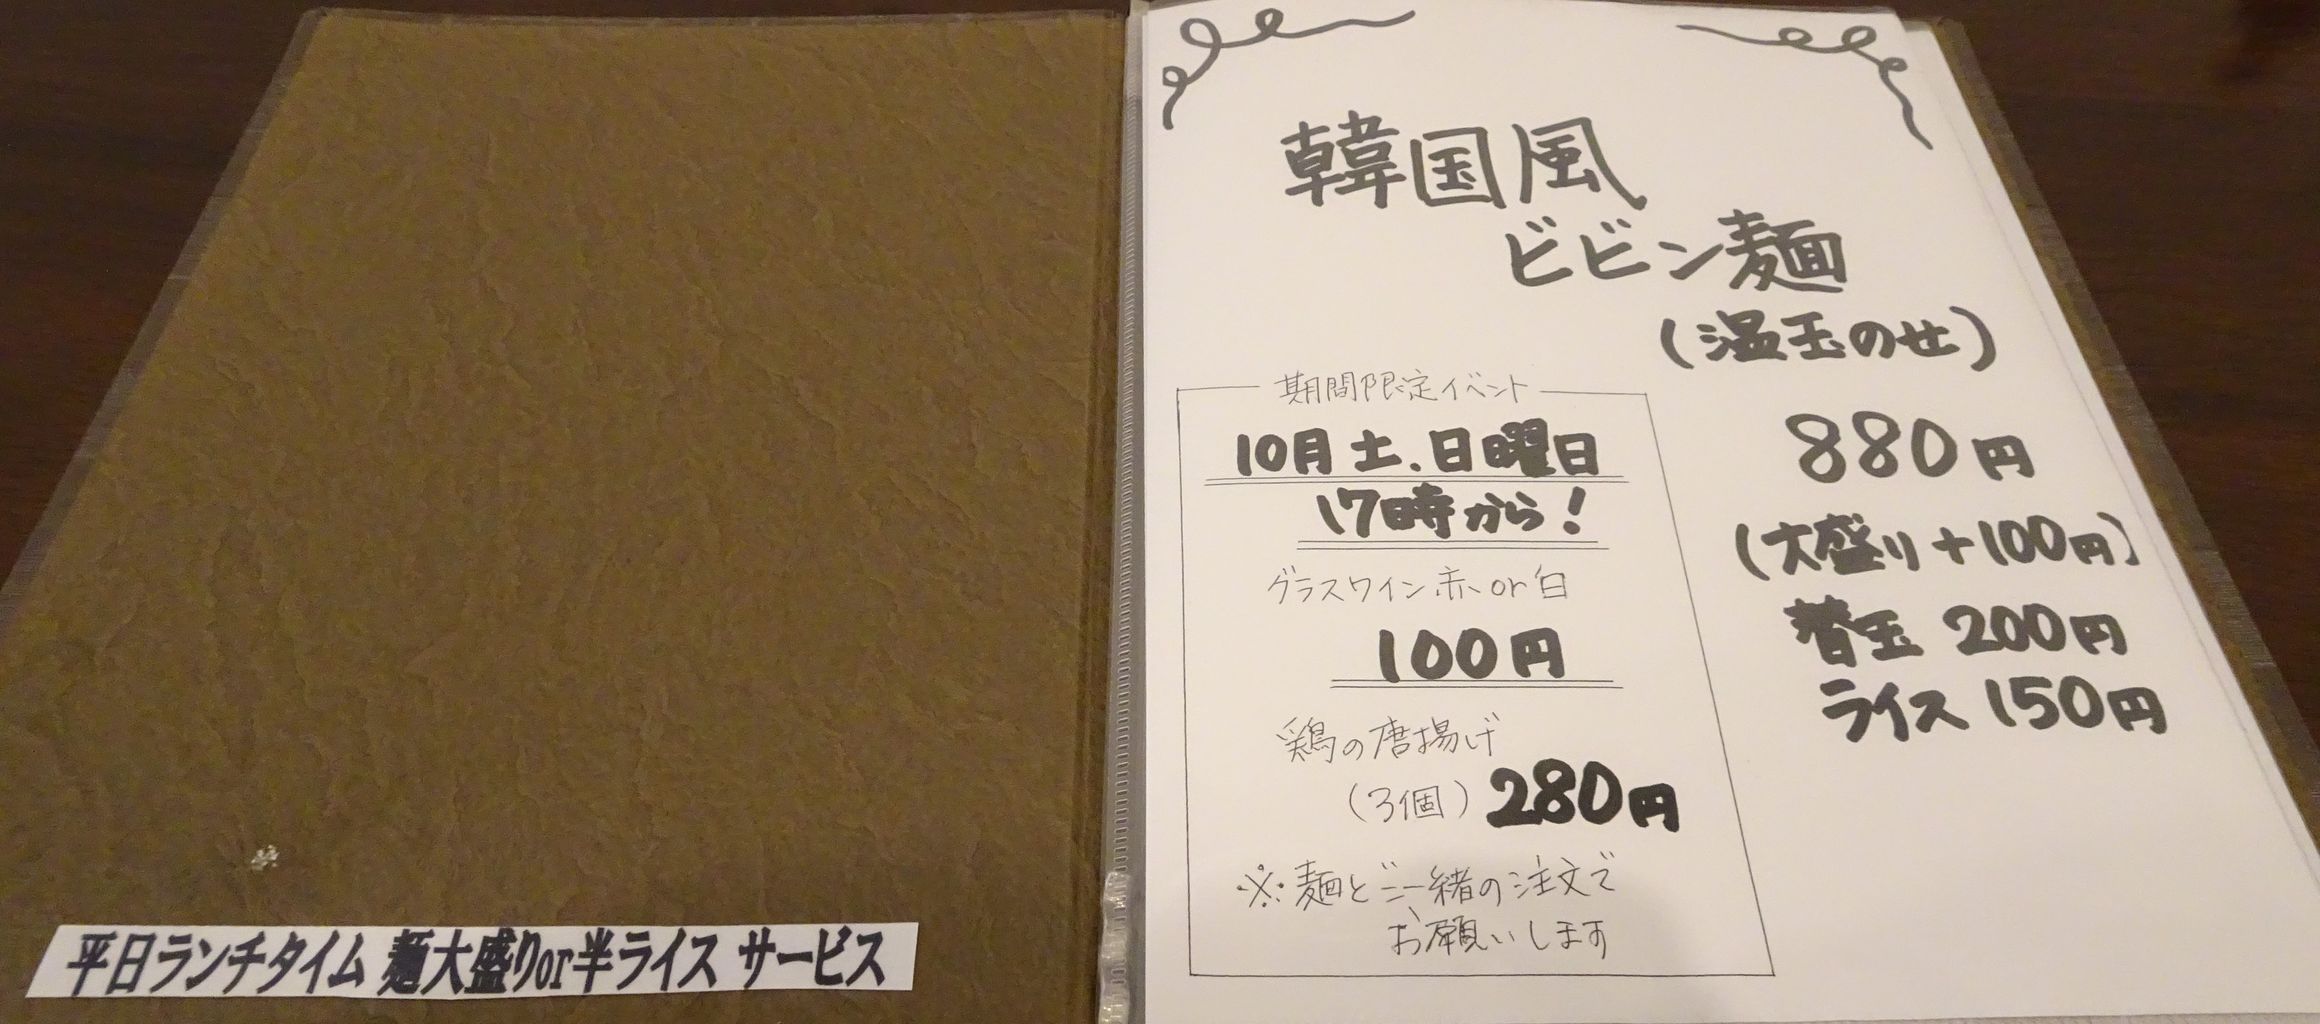 平日ランチタイム 麺大盛りor半ライス サービス
韓国風
ビビン麺
(温玉のせ)
880円
(大盛り+100円)
替玉 200円
ライス 150円
期間限定イベント
10月土.日曜日
17時から!
グラスワイン赤or白
100円
鶏の唐揚げ
(3個) 280円
※麺とご一緒の注文で
お願いします